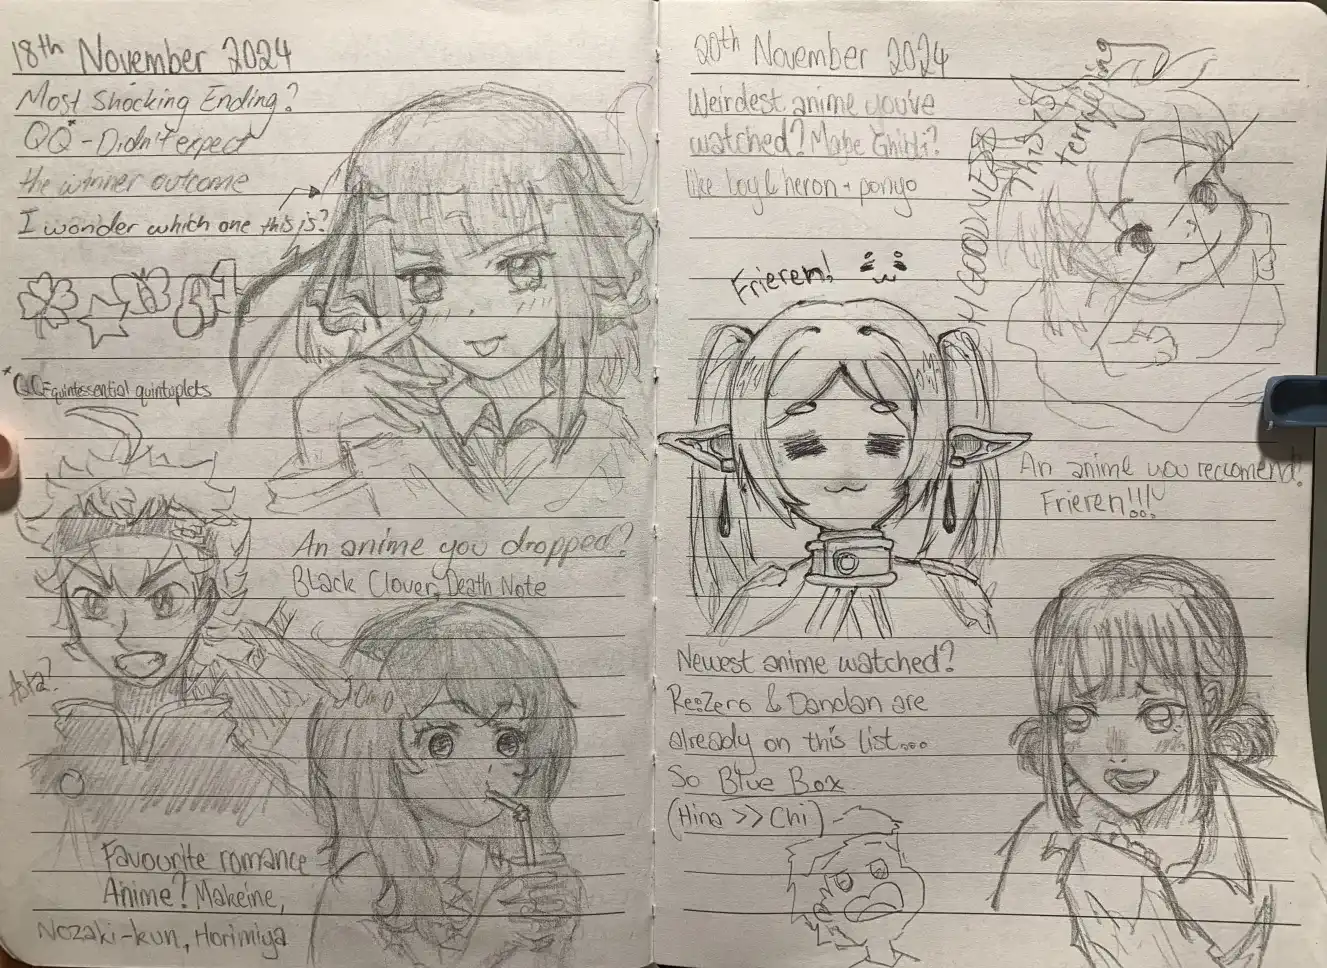 18th November 2024
Most Shocking Ending?
QQ* - Didn't expect
the winner outcome
I wonder which one this is?
* QQ Equintessential quintuplets
An anime you dropped?
Black Clover, Death Note
Asta?
Favourite romance
Anime? Makeine,
Nozaki-kun, Horimiya
20th November 2024
Weirdest anime you've
watched? Mabe Ghibli?
like boy & heron + ponyo
OH GOODNESS
This is
terrifying
Frieren!
An anime you reccomend?
Frieren!!!
Newest anime watched?
Re:Zero & Dandan are
already on this list...
So Blue Box
(Hina >> Chi)